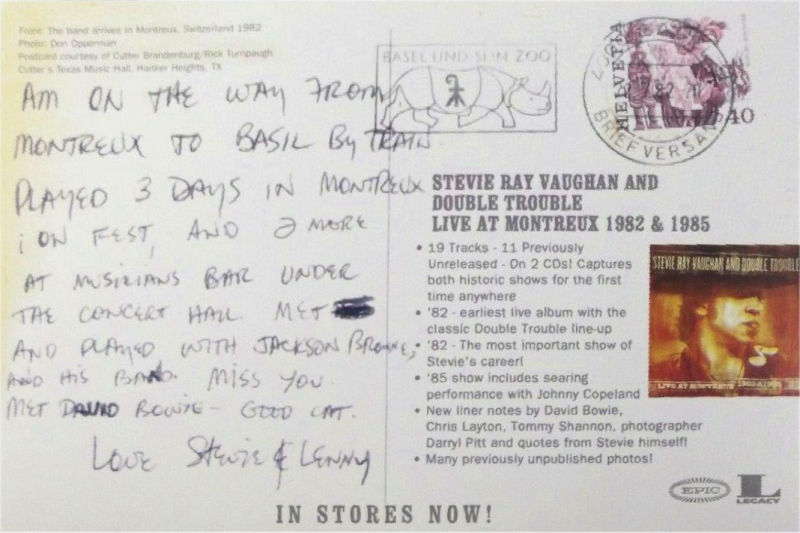 Front: The band arrives in Montreux, Switzerland 1982
Photo: Don Opperman
Postcard courtesy of Cutter Brandenburg/Rick Turnpaugh
Cutter's Texas Music Hall, Harker Heights, TX
BASEL UND SEIN ZOO
HELVETIA
40
BRIEFVERSAND
AM ON THE WAY FROM
MONTREUX TO BASIL BY TRAIN
PLAYED 3 DAYS IN MONTREUX
1 ON FEST, AND 2 MORE
AT MUSICIANS BAR UNDER
THE CONCERT HALL. MET
AND PLAYED WITH JACKSON BROWNE,
AND HIS BAND. MISS YOU.
MET DAVID BOWIE – GOOD CAT.
LOVE STEVIE & LENNY
STEVIE RAY VAUGHAN AND
DOUBLE TROUBLE
LIVE AT MONTREUX 1982 & 1985
• 19 Tracks - 11 Previously
Unreleased - On 2 CDs! Captures
both historic shows for the first
time anywhere
• '82 - earliest live album with the
classic Double Trouble line-up
• '82 - The most important show of
Stevie's career!
• '85 show includes searing
performance with Johnny Copeland
• New liner notes by David Bowie,
Chris Layton, Tommy Shannon, photographer
Darryl Pitt and quotes from Stevie himself!
• Many previously unpublished photos!
STEVIE RAY VAUGHAN AND DOUBLE TROUBLE
LIVE AT MONTREUX 1982 & 1985
EPIC
L
LEGACY
IN STORES NOW!